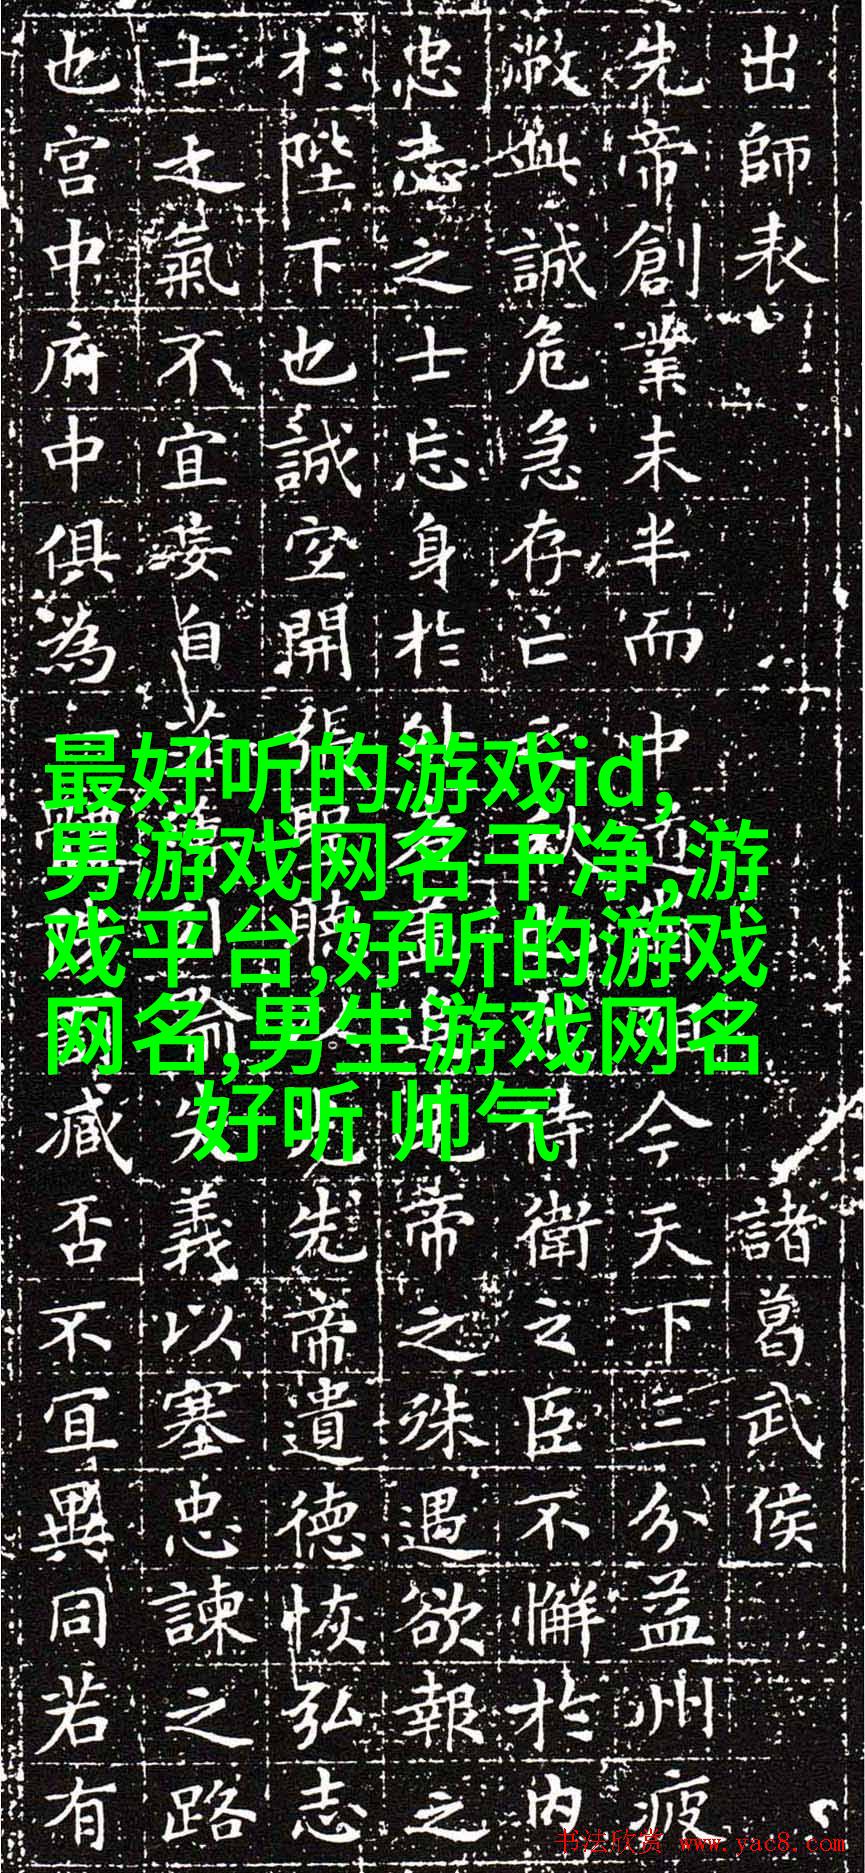 出師表 諸葛武侯
先帝創業未半而中道殂今天下三分益州疲
敝此誠危急存亡之秋侍衛之臣不懈於內
忠志之士忘身於外者蓋追先帝之殊遇欲報之
於陛下也誠空開張聖聽以光先帝遺德恢弘志
士之氣不宜妄自菲薄引喻失義以塞忠諫之路
也宮中府中俱為一體陟罰臧否不宜異同若有
最好听的游戏id,
男游戏网名干净,游
戏平台,好听的游戏
网名,男生游戏网名
好听 帅气
书法欣赏 www.yac8.com